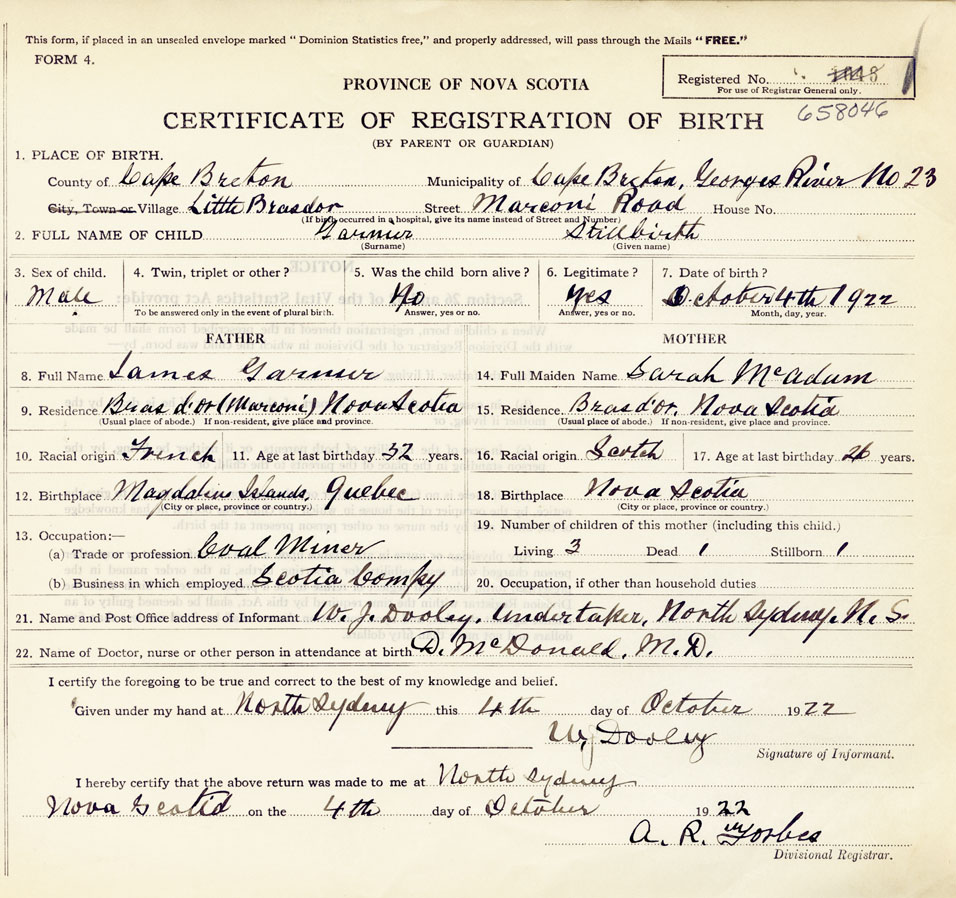 This form, if placed in an unsealed envelope marked " Dominion Statistics free," and properly addressed, will pass through the Mails "FREE."
FORM 4.
Registered No.
For use of Registrar General only.
PROVINCE OF NOVA SCOTIA
658046
CERTIFICATE OF REGISTRATION OF BIRTH
(BY PARENT OR GUARDIAN)
1. PLACE OF BIRTH.
County of Cape Breton Municipality of Cape Breton, Georges River No 23
City, Town or Village Little Brasdor Street Marconi Road House No.
(If birth occurred in a hospital, give its name instead of Street and Number)
2. FULL NAME OF CHILD Garnier Stillbirth
(Surname) (Given name)
3. Sex of child. 4. Twin, triplet or other? 5. Was the child born alive? 6. Legitimate? 7. Date of birth?
Male No Yes October 4th 1922
To be answered only in the event of plural birth. Answer, yes or no. Answer, yes or no. Month, day, year.
FATHER MOTHER
8. Full Name James Garnier 14. Full Maiden Name Sarah McAdam
9. Residence Bras d'or (Marconi) Nova Scotia 15. Residence Bras d'or, Nova Scotia
(Usual place of abode.) If non-resident, give place and province. (Usual place of abode.) If non-resident, give place and province.
10. Racial origin French 11. Age at last birthday 32 years. 16. Racial origin Scotch 17. Age at last birthday 26 years.
12. Birthplace Magdalins Islands, Quebec 18. Birthplace Nova Scotia
(City or place, province or country.) (City or place, province or country.)
13. Occupation:— 19. Number of children of this mother (including this child.)
(a) Trade or profession Coal Miner Living 3 Dead 1 Stillborn 1
(b) Business in which employed Scotia Compy 20. Occupation, if other than household duties
21. Name and Post Office address of Informant W. J. Dooley. Undertaker, North Sydney. N. S.
22. Name of Doctor, nurse or other person in attendance at birth D. McDonald, M.D.
I certify the foregoing to be true and correct to the best of my knowledge and belief.
Given under my hand at North Sydney this 4th day of October 1922
WJ Dooley
Signature of Informant.
I hereby certify that the above return was made to me at North Sydney
Nova Scotia on the 4th day of October 1922
A. R. Forbes
Divisional Registrar.